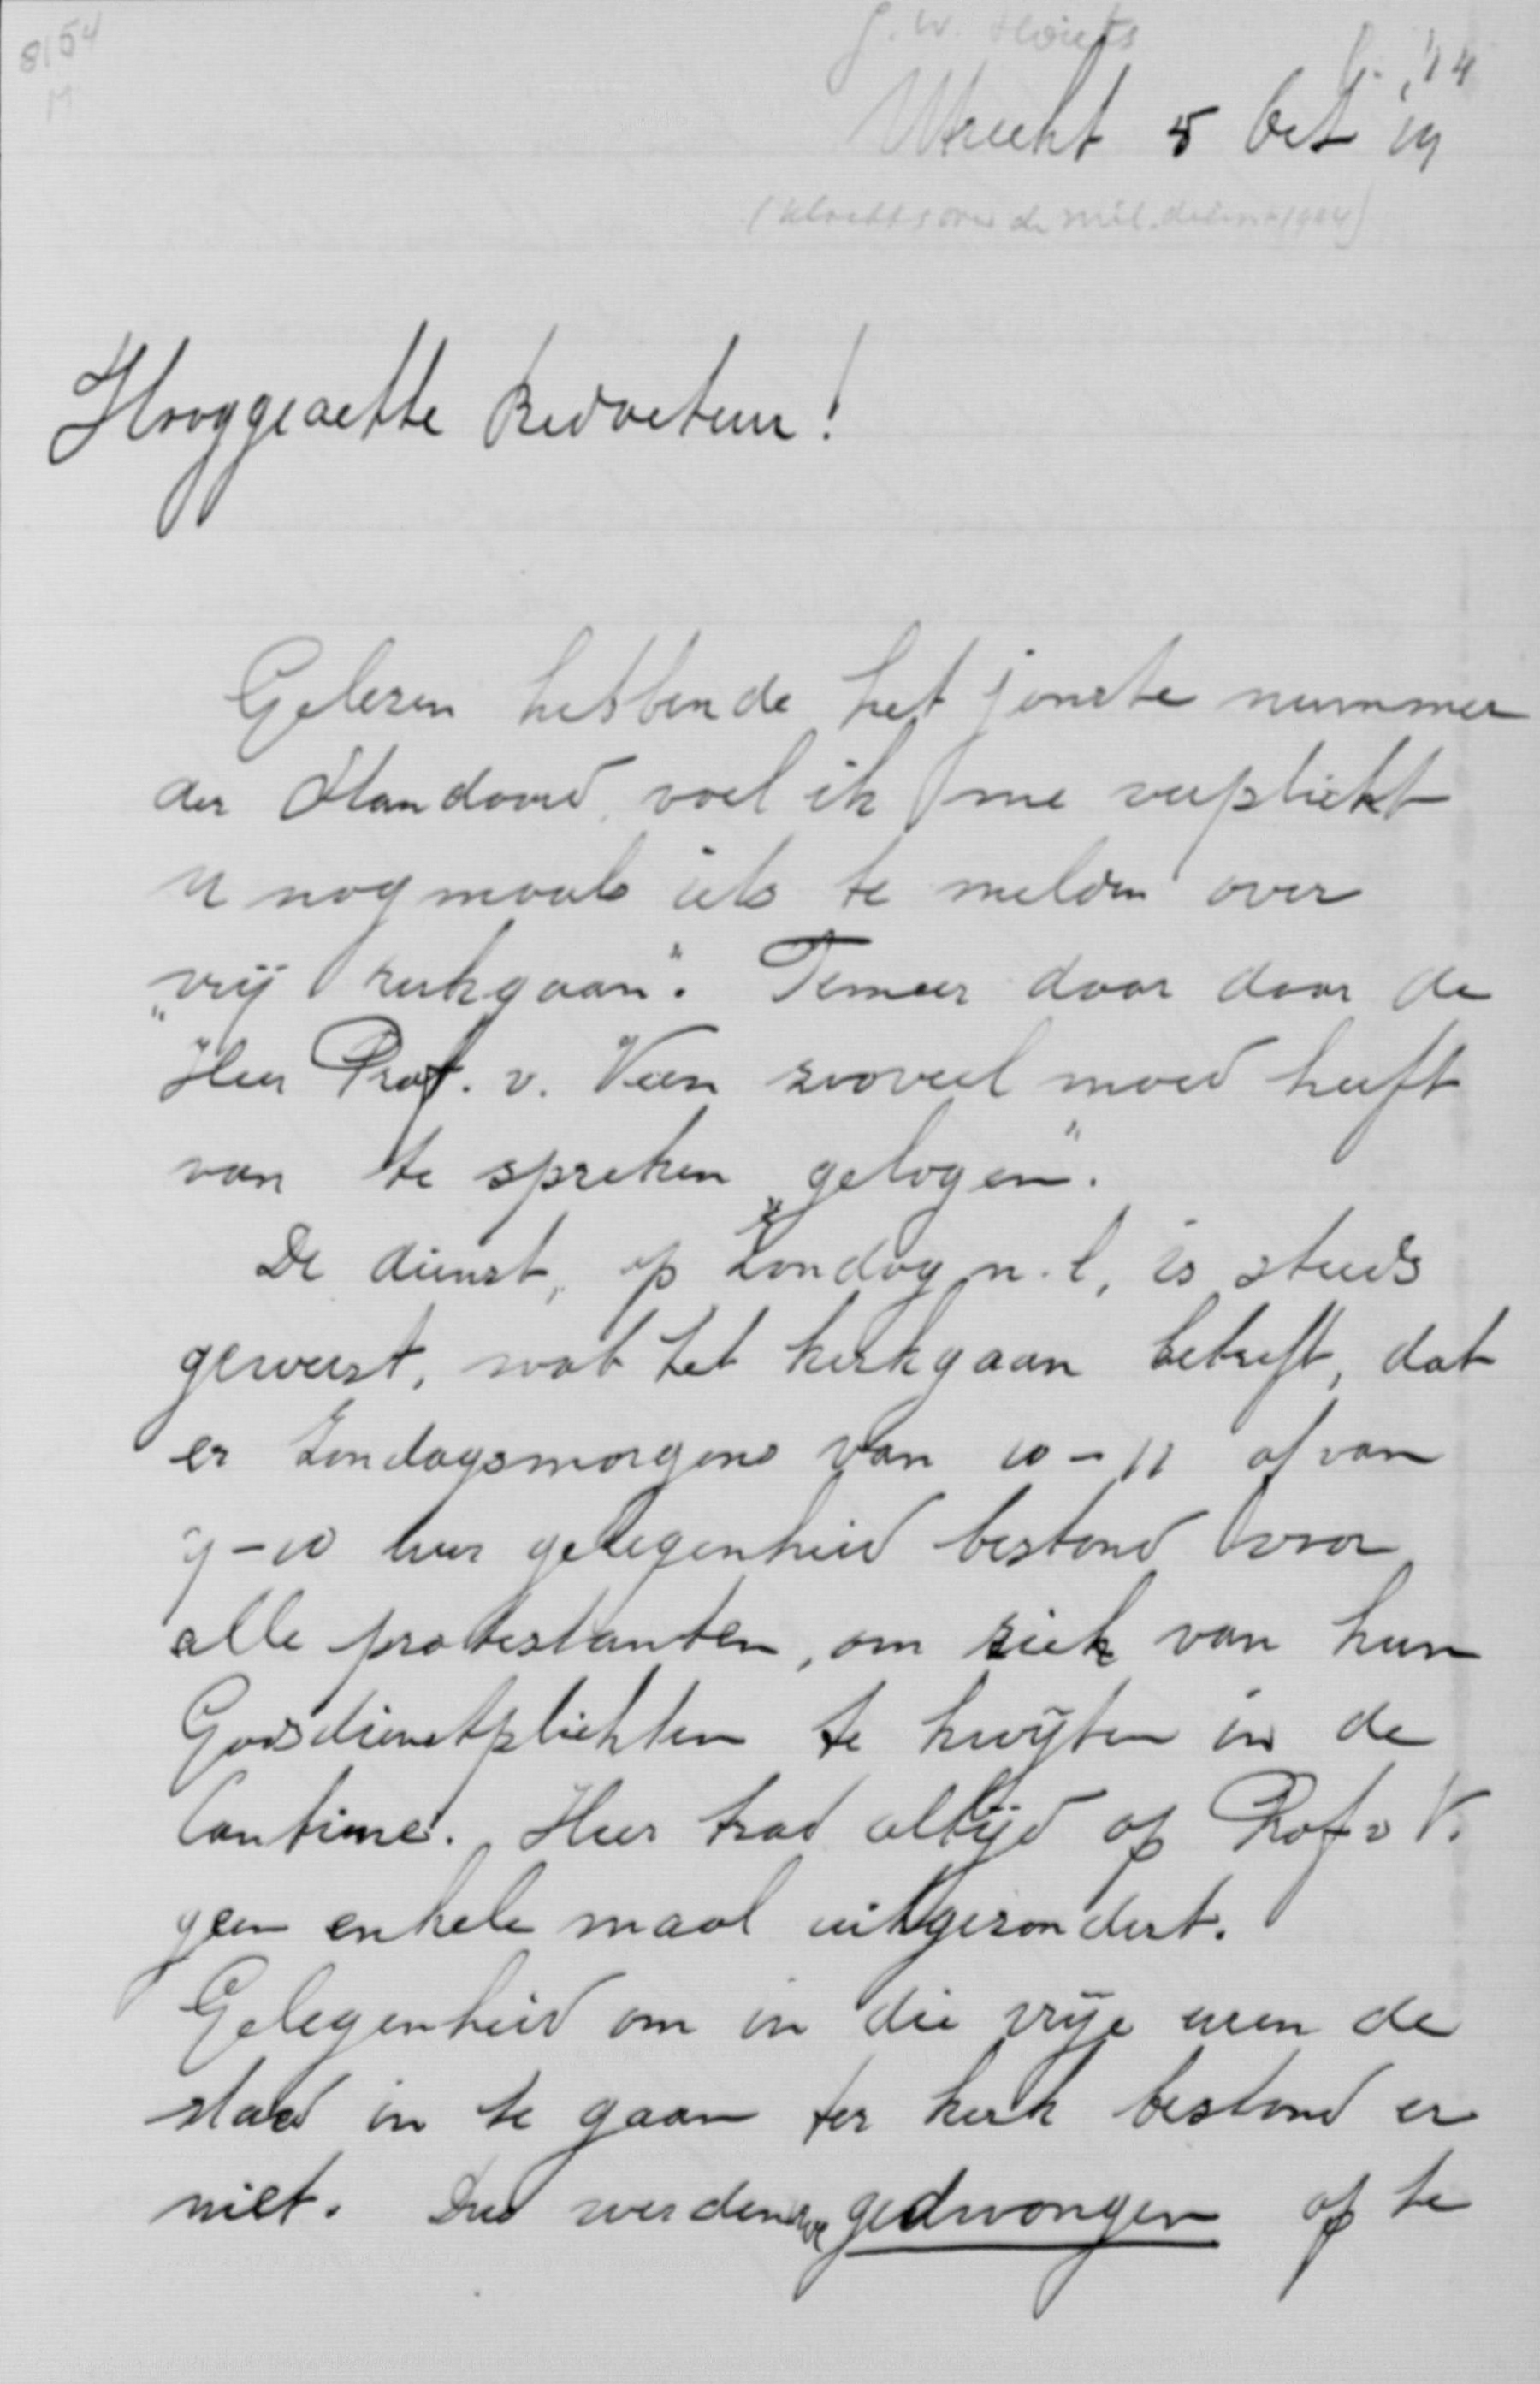 8154
M
J. W.
Utrecht 5 Oct 14
Hooggeachte Redacteur!
Gelezen hebbende het jongste nummer
der Standaard, voel ik me verplicht
U nogmaals iets te melden over
„vrij kerkgaan". Temeer daar daar de
Heer Prof. v. Veen zooveel moed heeft
van te spreken „gelogen".
De dienst, op Zondag n.l, is steeds
geweest, wat het kerkgaan betreft, dat
er Zondagsmorgens van 10 - 11 of van
9 - 10 uur gelegenheid bestond voor
alle protestanten, om zich van hun
Godsdienstplichten te kwijten in de
Cantine. Hier trad altijd op Prof v V.
geen enkele maal uitgezondert.
Gelegenheid om in die vrije uren de
stad in te gaan ter kerk bestond er
niet. Dus werden we gedwongen of te